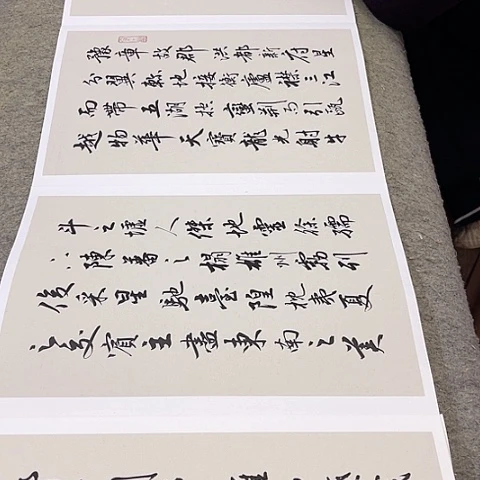 豫章故郡洪都新府星
分翼軫地接衡廬襟三江
而帶五湖控蠻荊而引甌
越物華天寶龍光射牛
斗之墟人傑地靈徐孺
下陳蕃之榻雄州霧列
俊采星馳臺隍枕夷夏
之交賓主盡東南之美